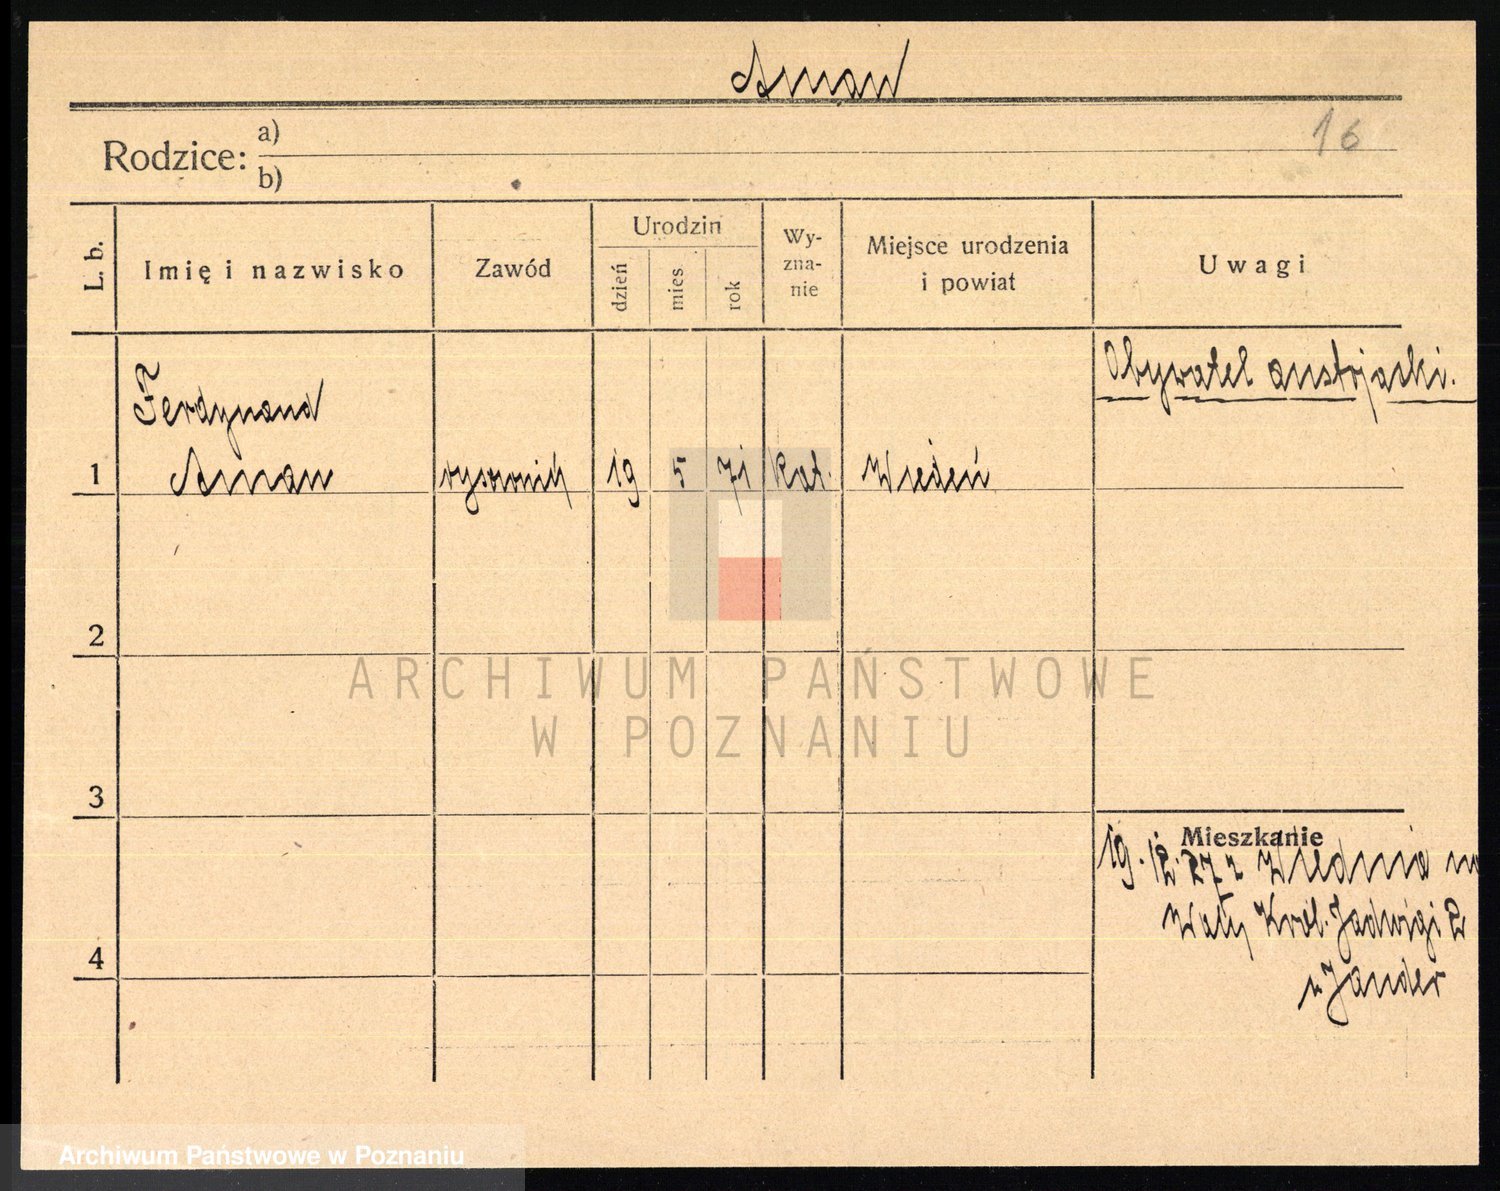 Aman
16
Rodzice: a)
b)
L. b.
Imię i nazwisko
Zawód
Urodzin
dzień
mies
rok
Wy-
zna-
nie
Miejsce urodzenia
i powiat
Uwagi
Obywatel austrjacki.
Ferdynand
1 Aman rysownik 19 5 71 Kat. Wiedeń
2
ARCHIWUM PAŃSTWOWE
W POZNANIU
3
Mieszkanie
19. 12. 27 z Wiednia na
Wały Król. Jadwigi 2
4
u Jander
Archiwum Państwowe w Poznaniu